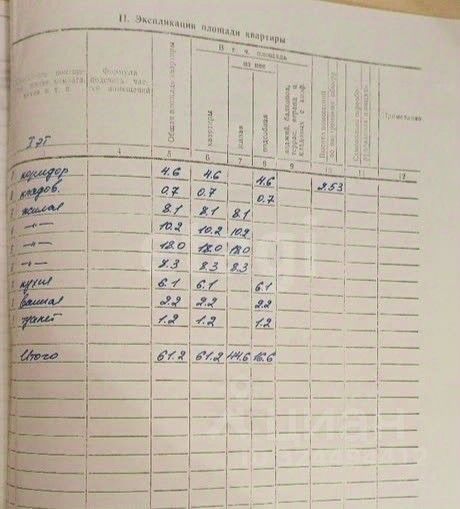 II. Экспликация площади квартиры
В т. ч. площадь
из нее
Формула подсчета частей помещений
Общая площадь квартиры
квартиры
жилая
подсобная
лоджий, балконов, террас, веранд и кладовых с коэф.
Высота помещений по внутреннему обмеру
Примечание
4 5 6 7 8 9 10 11 12
I эт
коридор 4.6 4.6 4.6 2.53
кладов. 0.7 0.7 0.7
жилая 8.1 8.1 8.1
-"- 10.2 10.2 10.2
-"- 18.0 18.0 18.0
-"- 8.3 8.3 8.3
кухня 6.1 6.1 6.1
ванная 2.2 2.2 2.2
туалет 1.2 1.2 1.2
Итого 61.2 61.2 44.6 16.6
циан